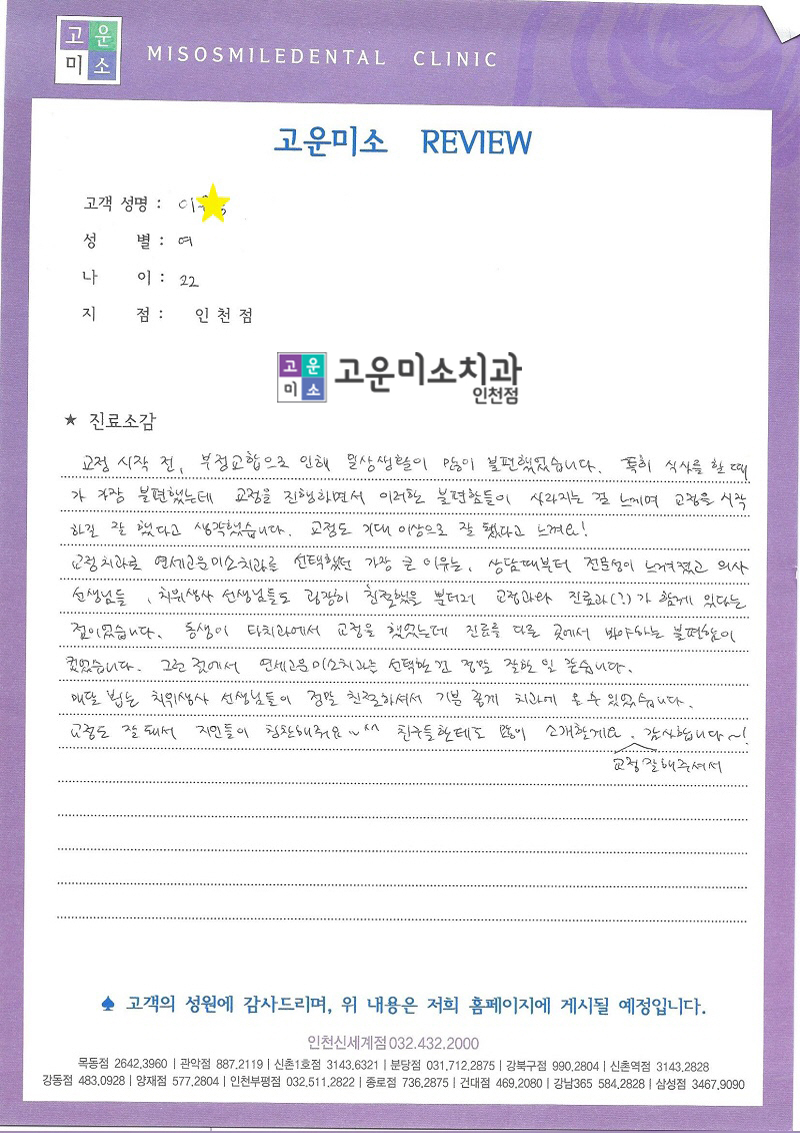 고운
미소
MISOSMILEDENTAL CLINIC
고운미소 REVIEW
고객 성명 : 이
성 별 : 여
나 이 : 22
지 점 : 인천점
고운
미소
고운미소치과
인천점
★ 진료소감
교정 시작 전, 부정교합으로 인해 일상생활이 많이 불편했었습니다. 특히 식사를 할 때
가 가장 불편했는데 교정을 진행하면서 이러한 불편함들이 사라지는 걸 느끼며 교정을 시작
하길 잘 했다고 생각했습니다. 교정도 기대 이상으로 잘 됐다고 느껴요!
교정치과로 연세고운미소치과를 선택했던 가장 큰 이유는, 상담때부터 전문성이 느껴졌고 의사
선생님들, 치위생사 선생님들도 굉장히 친절했을 뿐더러 교정과와 진료과(?)가 함께 있다는
점이었습니다. 동생이 타치과에서 교정을 했었는데 진료를 다른 곳에서 봐야하는 불편함이
컸었습니다. 그런 점에서 연세고운미소치과는 선택한 건 정말 잘한 일 같습니다.
매달 뵙는 치위생사 선생님들이 정말 친절하셔서 기분 좋게 치과에 올 수 있었습니다.
교정도 잘 돼서 지인들이 칭찬해줘요 ~^^ 친구들한테도 많이 소개할게요. 감사합니다~!
교정 잘해주셔서
♠ 고객의 성원에 감사드리며, 위 내용은 저희 홈페이지에 게시될 예정입니다.
인천신세계점 032.432.2000
목동점 2642.3960 | 관악점 887.2119 | 신촌1호점 3143.6321 | 분당점 031.712.2875 | 강북구점 990.2804 | 신촌역점 3143.2828
강동점 483.0928 | 양재점 577.2804 | 인천부평점 032.511.2822 | 종로점 736.2875 | 건대점 469.2080 | 강남365 584.2828 | 삼성점 3467.9090